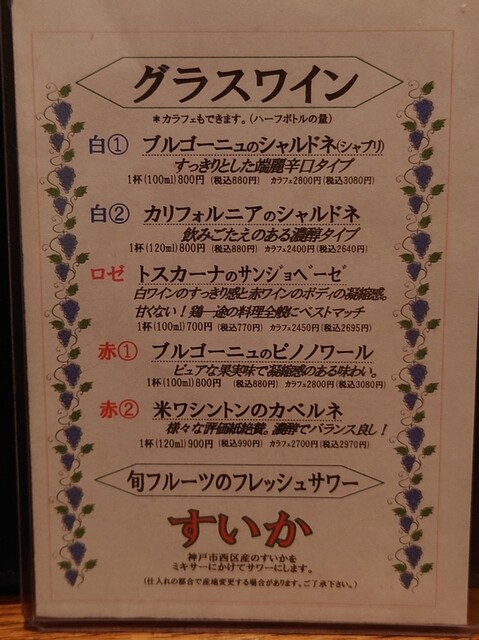 グラスワイン
*カラフェもできます。(ハーフボトルの量)
白① ブルゴーニュのシャルドネ(シャブリ)
すっきりとした端麗辛口タイプ
1杯(100ml)800円 (税込880円) カラフェ2800円(税込3080円)
白② カリフォルニアのシャルドネ
飲みごたえのある濃醇タイプ
1杯(120ml)800円 (税込880円) カラフェ2400円(税込2640円)
ロゼ トスカーナのサンジョベーゼ
白ワインのすっきり感と赤ワインのボディの凝縮感。
甘くない！鶏一途の料理全般にベストマッチ
1杯(100ml)700円 (税込770円) カラフェ2450円(税込2695円)
赤① ブルゴーニュのピノノワール
ピュアな果実味で凝縮感のある味わい。
1杯(100ml)800円 (税込880円) カラフェ2800円(税込3080円)
赤② 米ワシントンのカベルネ
様々な評価紙絶賛。濃醇でバランス良し！
1杯(120ml)900円 (税込990円) カラフェ2700円(税込2970円)
旬フルーツのフレッシュサワー
すいか
神戸市西区産のすいかを
ミキサーにかけてサワーにします。
(仕入れの都合で産地変更する場合があります。ご了承下さい。)